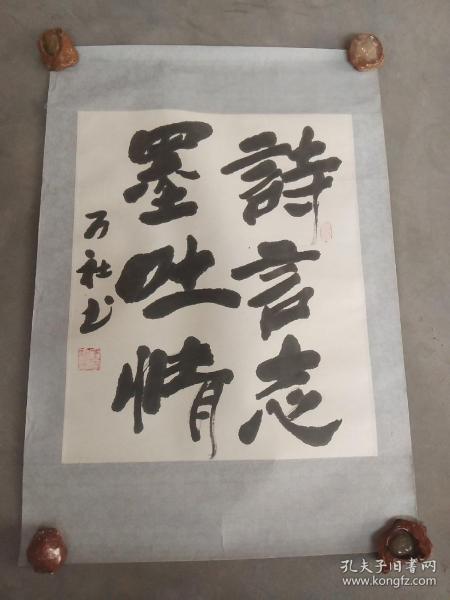 詩言志
墨吐情
万社书
孔夫子旧书网
www.kongfz.com